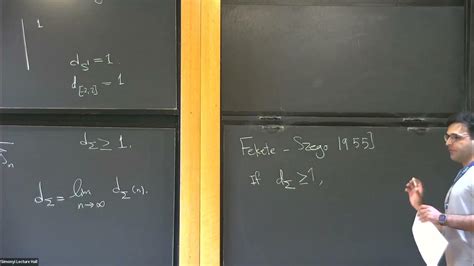 1
d_{S^1} = 1.
d_{[-2,2]} = 1
d_Σ ≥ 1.
d_Σ = lim_{n→∞} d_Σ(n).
Fekete - Szego 1955]
If d_Σ ≥ 1,
Simonyi Lecture Hall